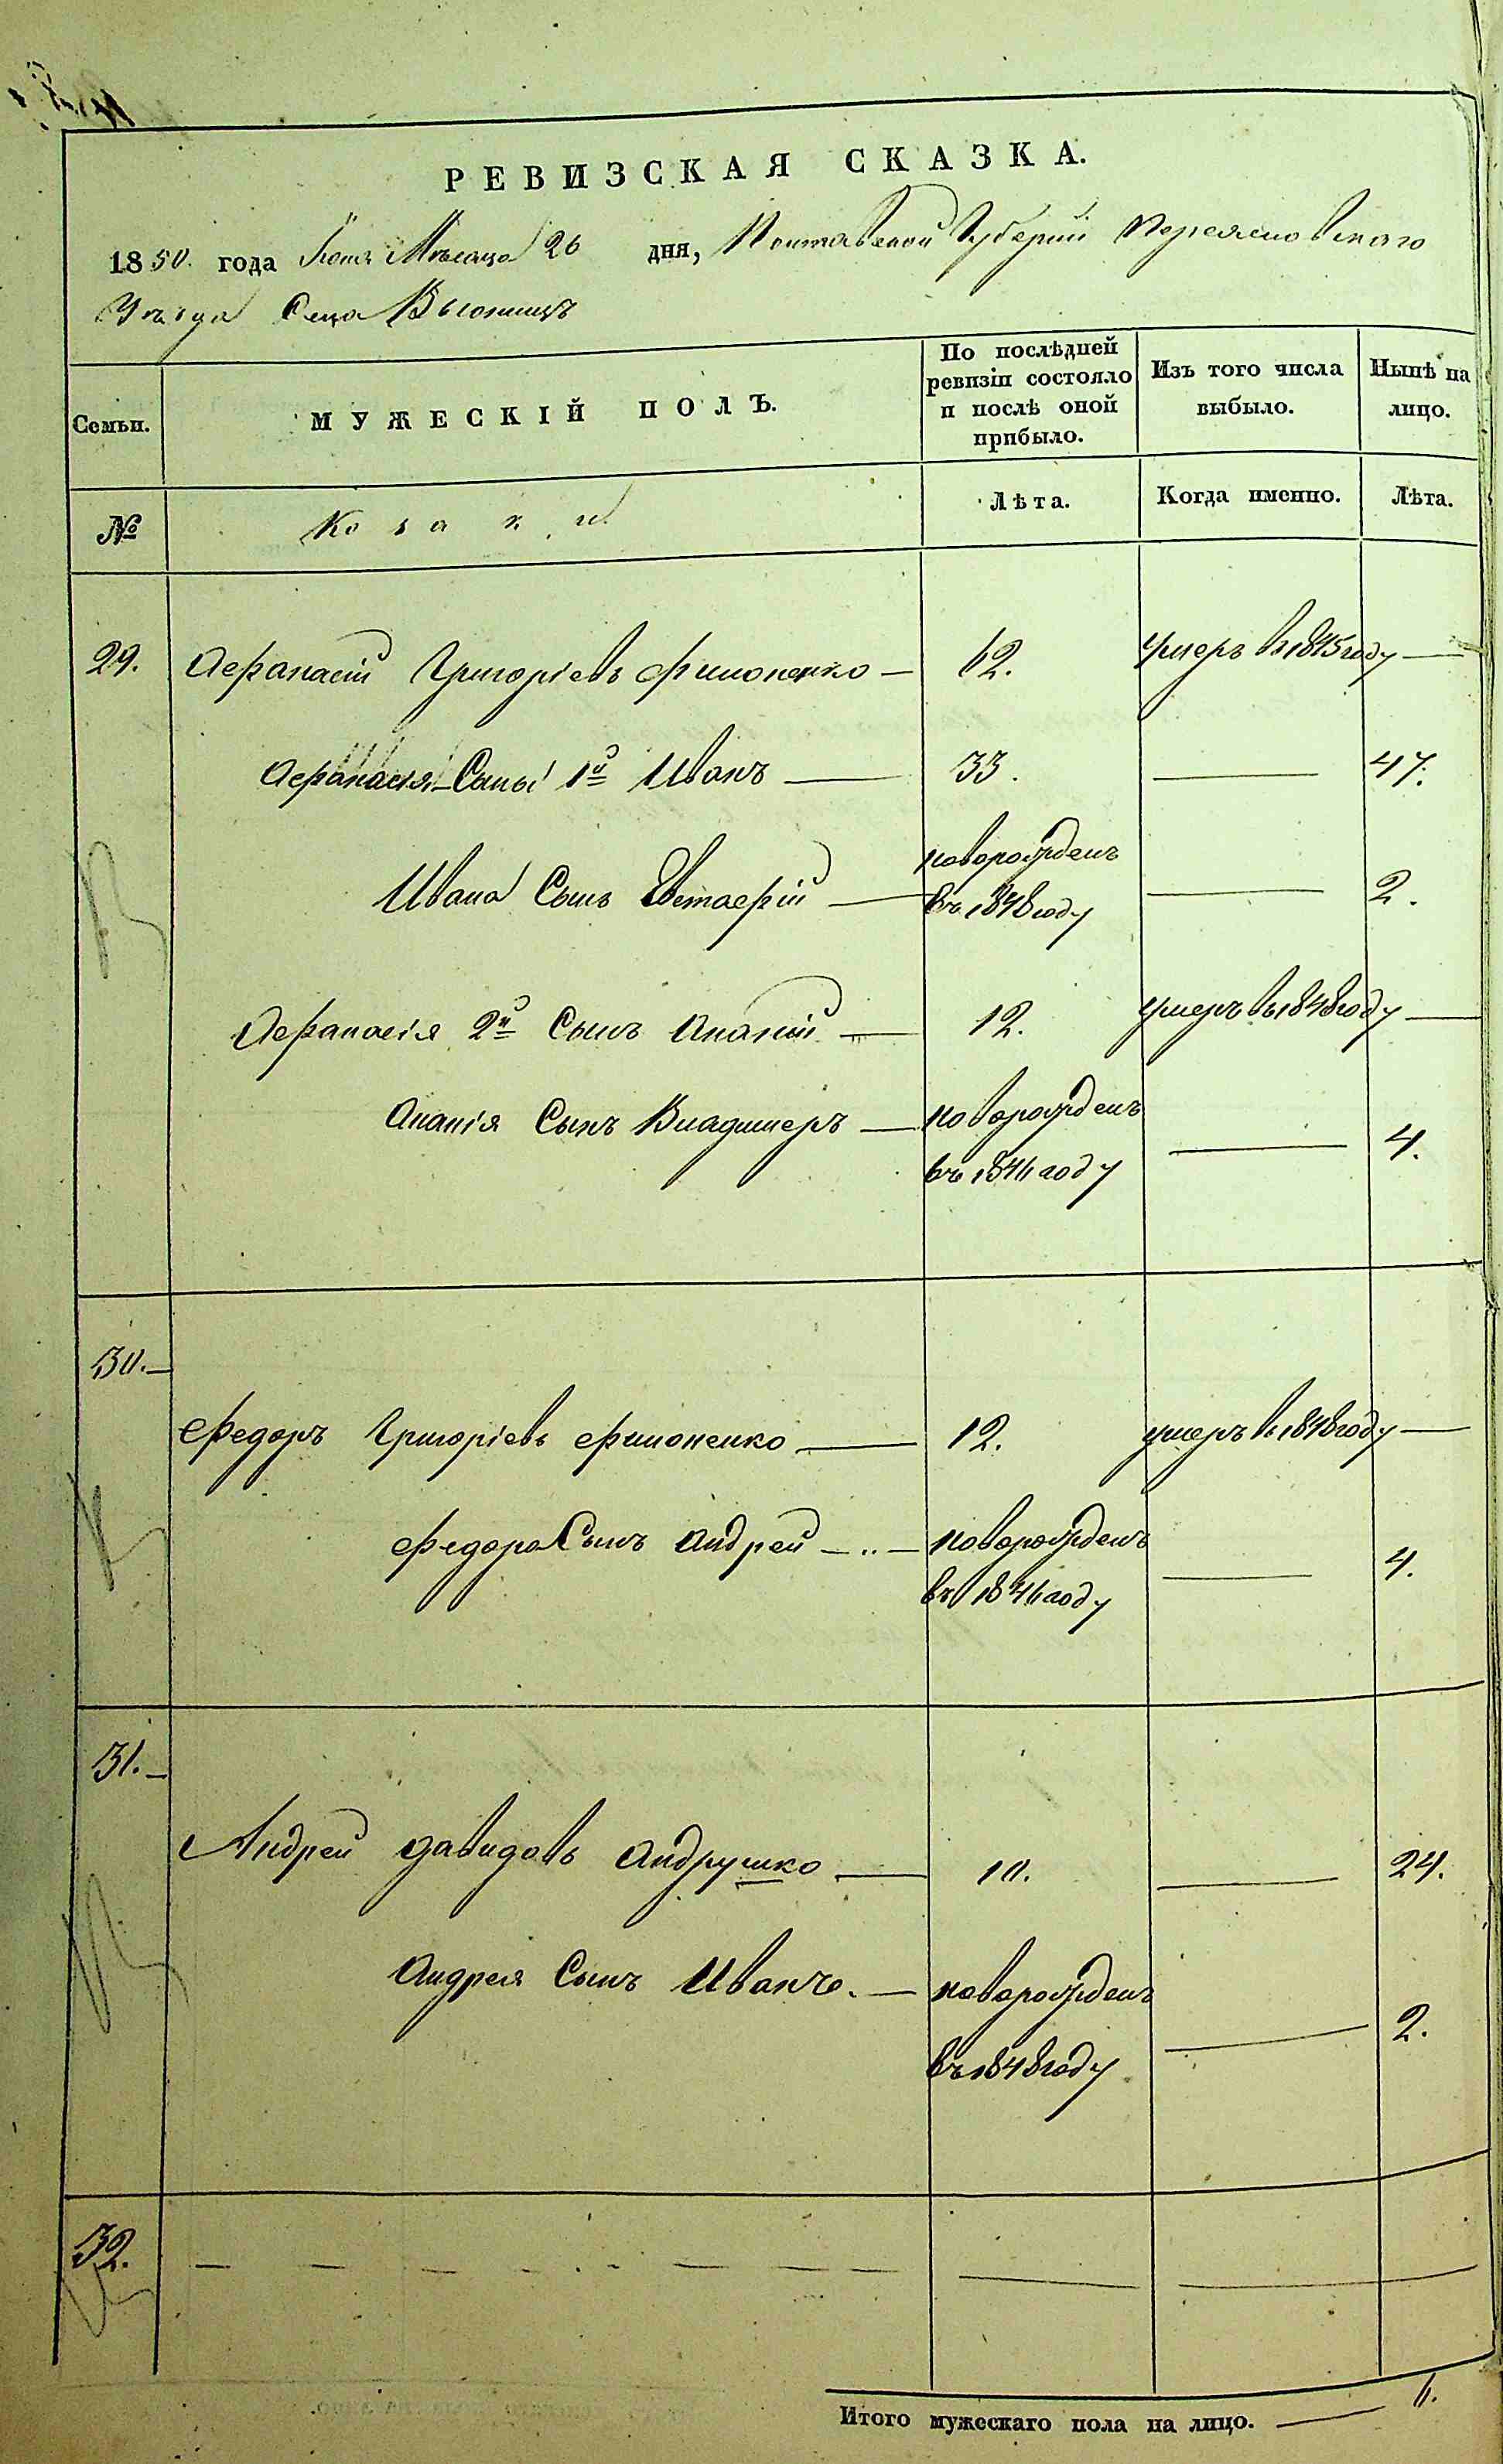 РЕВИЗСКАЯ СКАЗКА.
1850. года Іюня Мѣсяца 26 дня, Полтавской Губерніи Переяславскаго
Уѣзда Села
По послѣдней ревизіи состояло и послѣ оной прибыло.
Изъ того числа выбыло.
Нынѣ на лицо.
Семьи.
МУЖЕСКІЙ ПОЛЪ.
Лѣта.
Когда именно.
Лѣта.
№
Козаки.
29. Афанасій Григоріевъ Филоненко — 62. умеръ въ 1845 году —
Афанасія Сыны 1й Иванъ — 33. — 47.
Ивана Сынъ Евстафій — новорожденъ
въ 1848 году — 2.
Афанасія 2й Сынъ Ананій — 12. умеръ въ 1848 году —
Ананія Сынъ Владимеръ — новорожденъ
въ 1846 году — 4.
30. —
Федоръ Григоріевъ Филоненко — 12. умеръ въ 1848 году —
Федора Сынъ Андрей — новорожденъ
въ 1846 году — 4.
31. —
Андрей Давидовъ Андрушко — 10. — 24.
Андрея Сынъ Иванъ. — новорожденъ
въ 1848 году — 2.
32. —
Итого мужескаго пола на лицо. — 6.